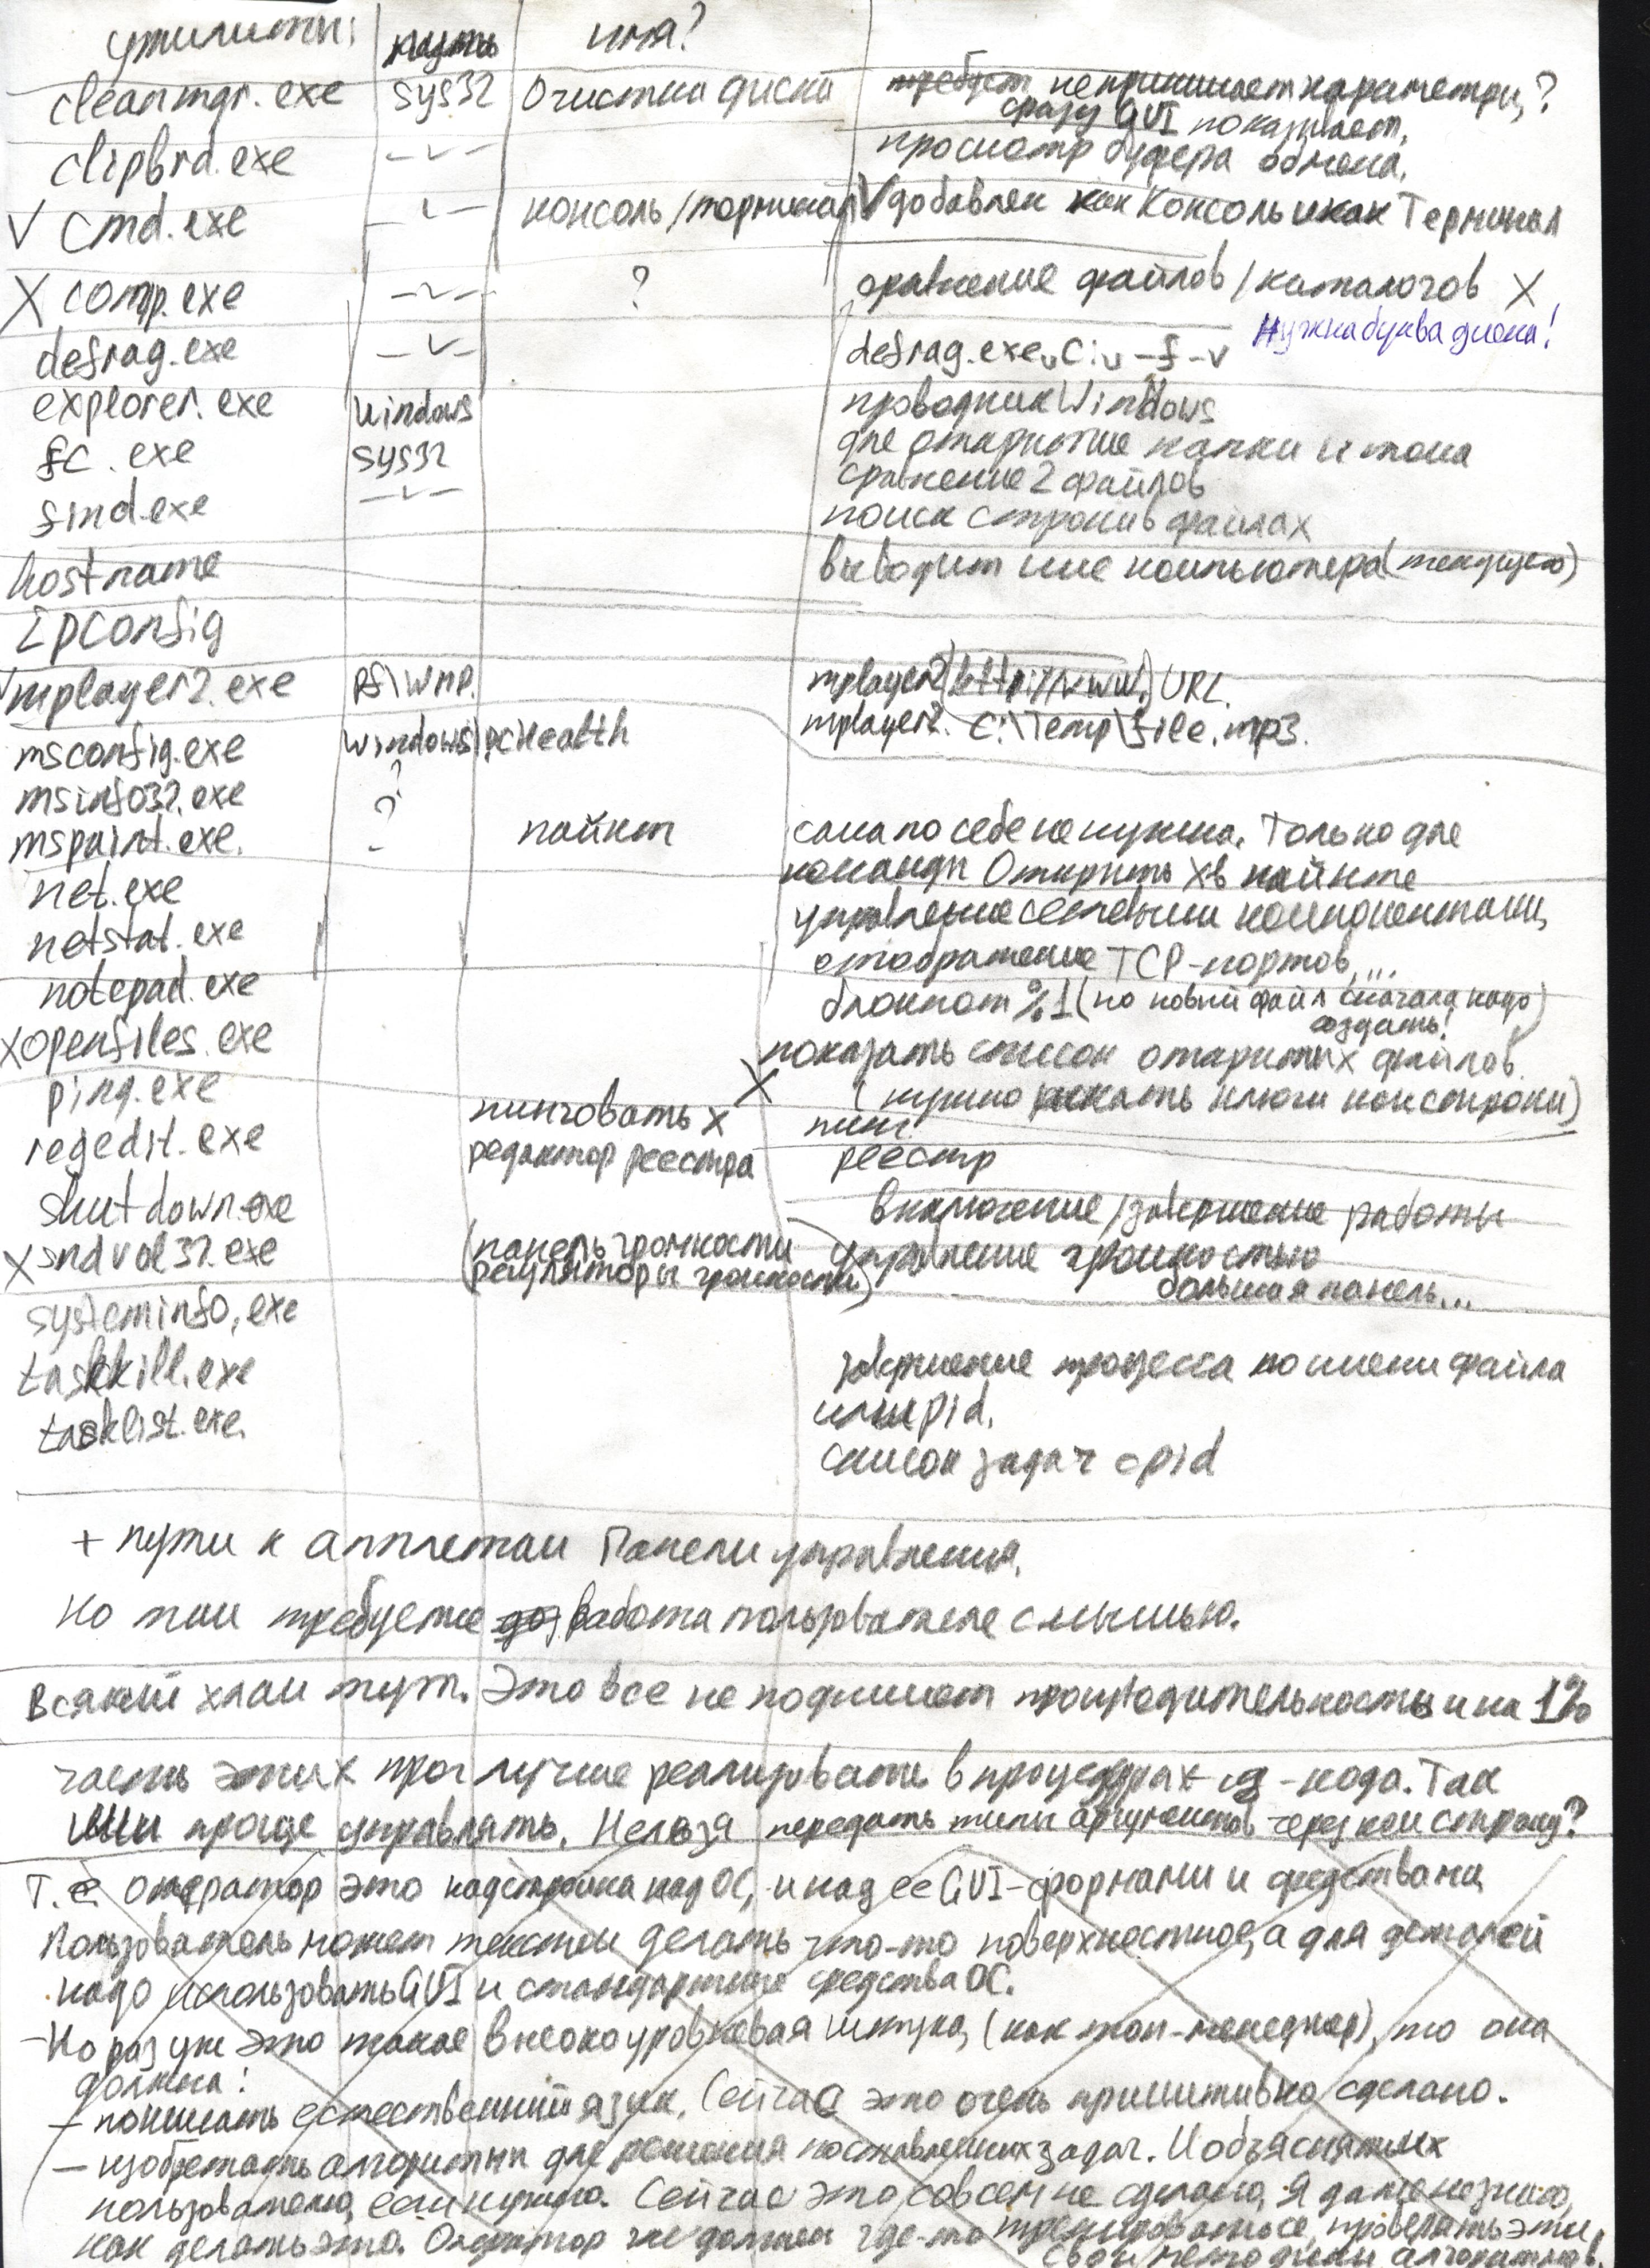 утилиты: путь имя?
cleanmgr.exe sys32 Очистка диска требует не принимает параметры?
сразу GUI показывает.
clipbrd.exe -v- просмотр буфера обмена.
V cmd.exe -v- консоль/терминал V добавлен как Консоль и как Терминал
X comp.exe -v- ? сравнение файлов/каталогов X
Нужна буква диска!
defrag.exe -v- defrag.exe C: -f -v
explorer.exe windows проводник Windows
для открытие папки и тома
fc.exe sys32 сравнение 2 файлов
find.exe -v- поиск строки в файлах
hostname выводит имя компьютера (текущего)
Ipconfig
mplayer2.exe pf\wmp. mplayer2 (http://www.) URL.
mplayer2. C:\Temp\file.mp3.
msconfig.exe windows\pcHealth
msinfo32.exe ?
mspaint.exe. ? пайнт сама по себе не нужна. Только для
команды Открыть X в пайнте
net.exe - управление сетевыми компонентами,
netstat.exe отображение TCP-портов,...
notepad.exe блокнот %1 (но новый файл сначала надо
создать!)
X openfiles.exe показать список открытых файлов.
(нужно искать ключи комстроки)
ping.exe пинговать X X пинг
regedit.exe редактор реестра реестр
shutdown.exe включение/завершение работы
X sndvol32.exe (панель громкости управление громкостью
регуляторы громкости) большая панель...
systeminfo.exe
taskkill.exe завершение процесса по имени файла
или pid.
tasklist.exe. список задач с pid
+ пути к апплетам Панели управления.
Но там требуется работа пользователя с мышью.
Всякий хлам тут. Это все не поднимет производительность и на 1%
часть этих прог лучше реализовать в процедурах -кода. Так
ими проще управлять. Нельзя передать типы аргументов через ком строку?
Т.е. Оператор это надстройка над ОС, и над ее GUI-формами и средствами
Пользователь может текстом делать что-то поверхностное, а для деталей
надо использовать GUI и стандартные средства ОС.
-Но раз уж это такая высокоуровневая штука, (как топ-менеджер), то она
должна:
- понимать естественный язык. Сейчас это очень примитивно сделано.
- изобретать алгоритмы для решения поставленных задач. И объяснять их
пользователю, если нужно. Сейчас это совсем не сделано, я даже не знаю,
как делать это. Оператор же должен где-то тренироваться, проверять эти
свои алгоритмов.